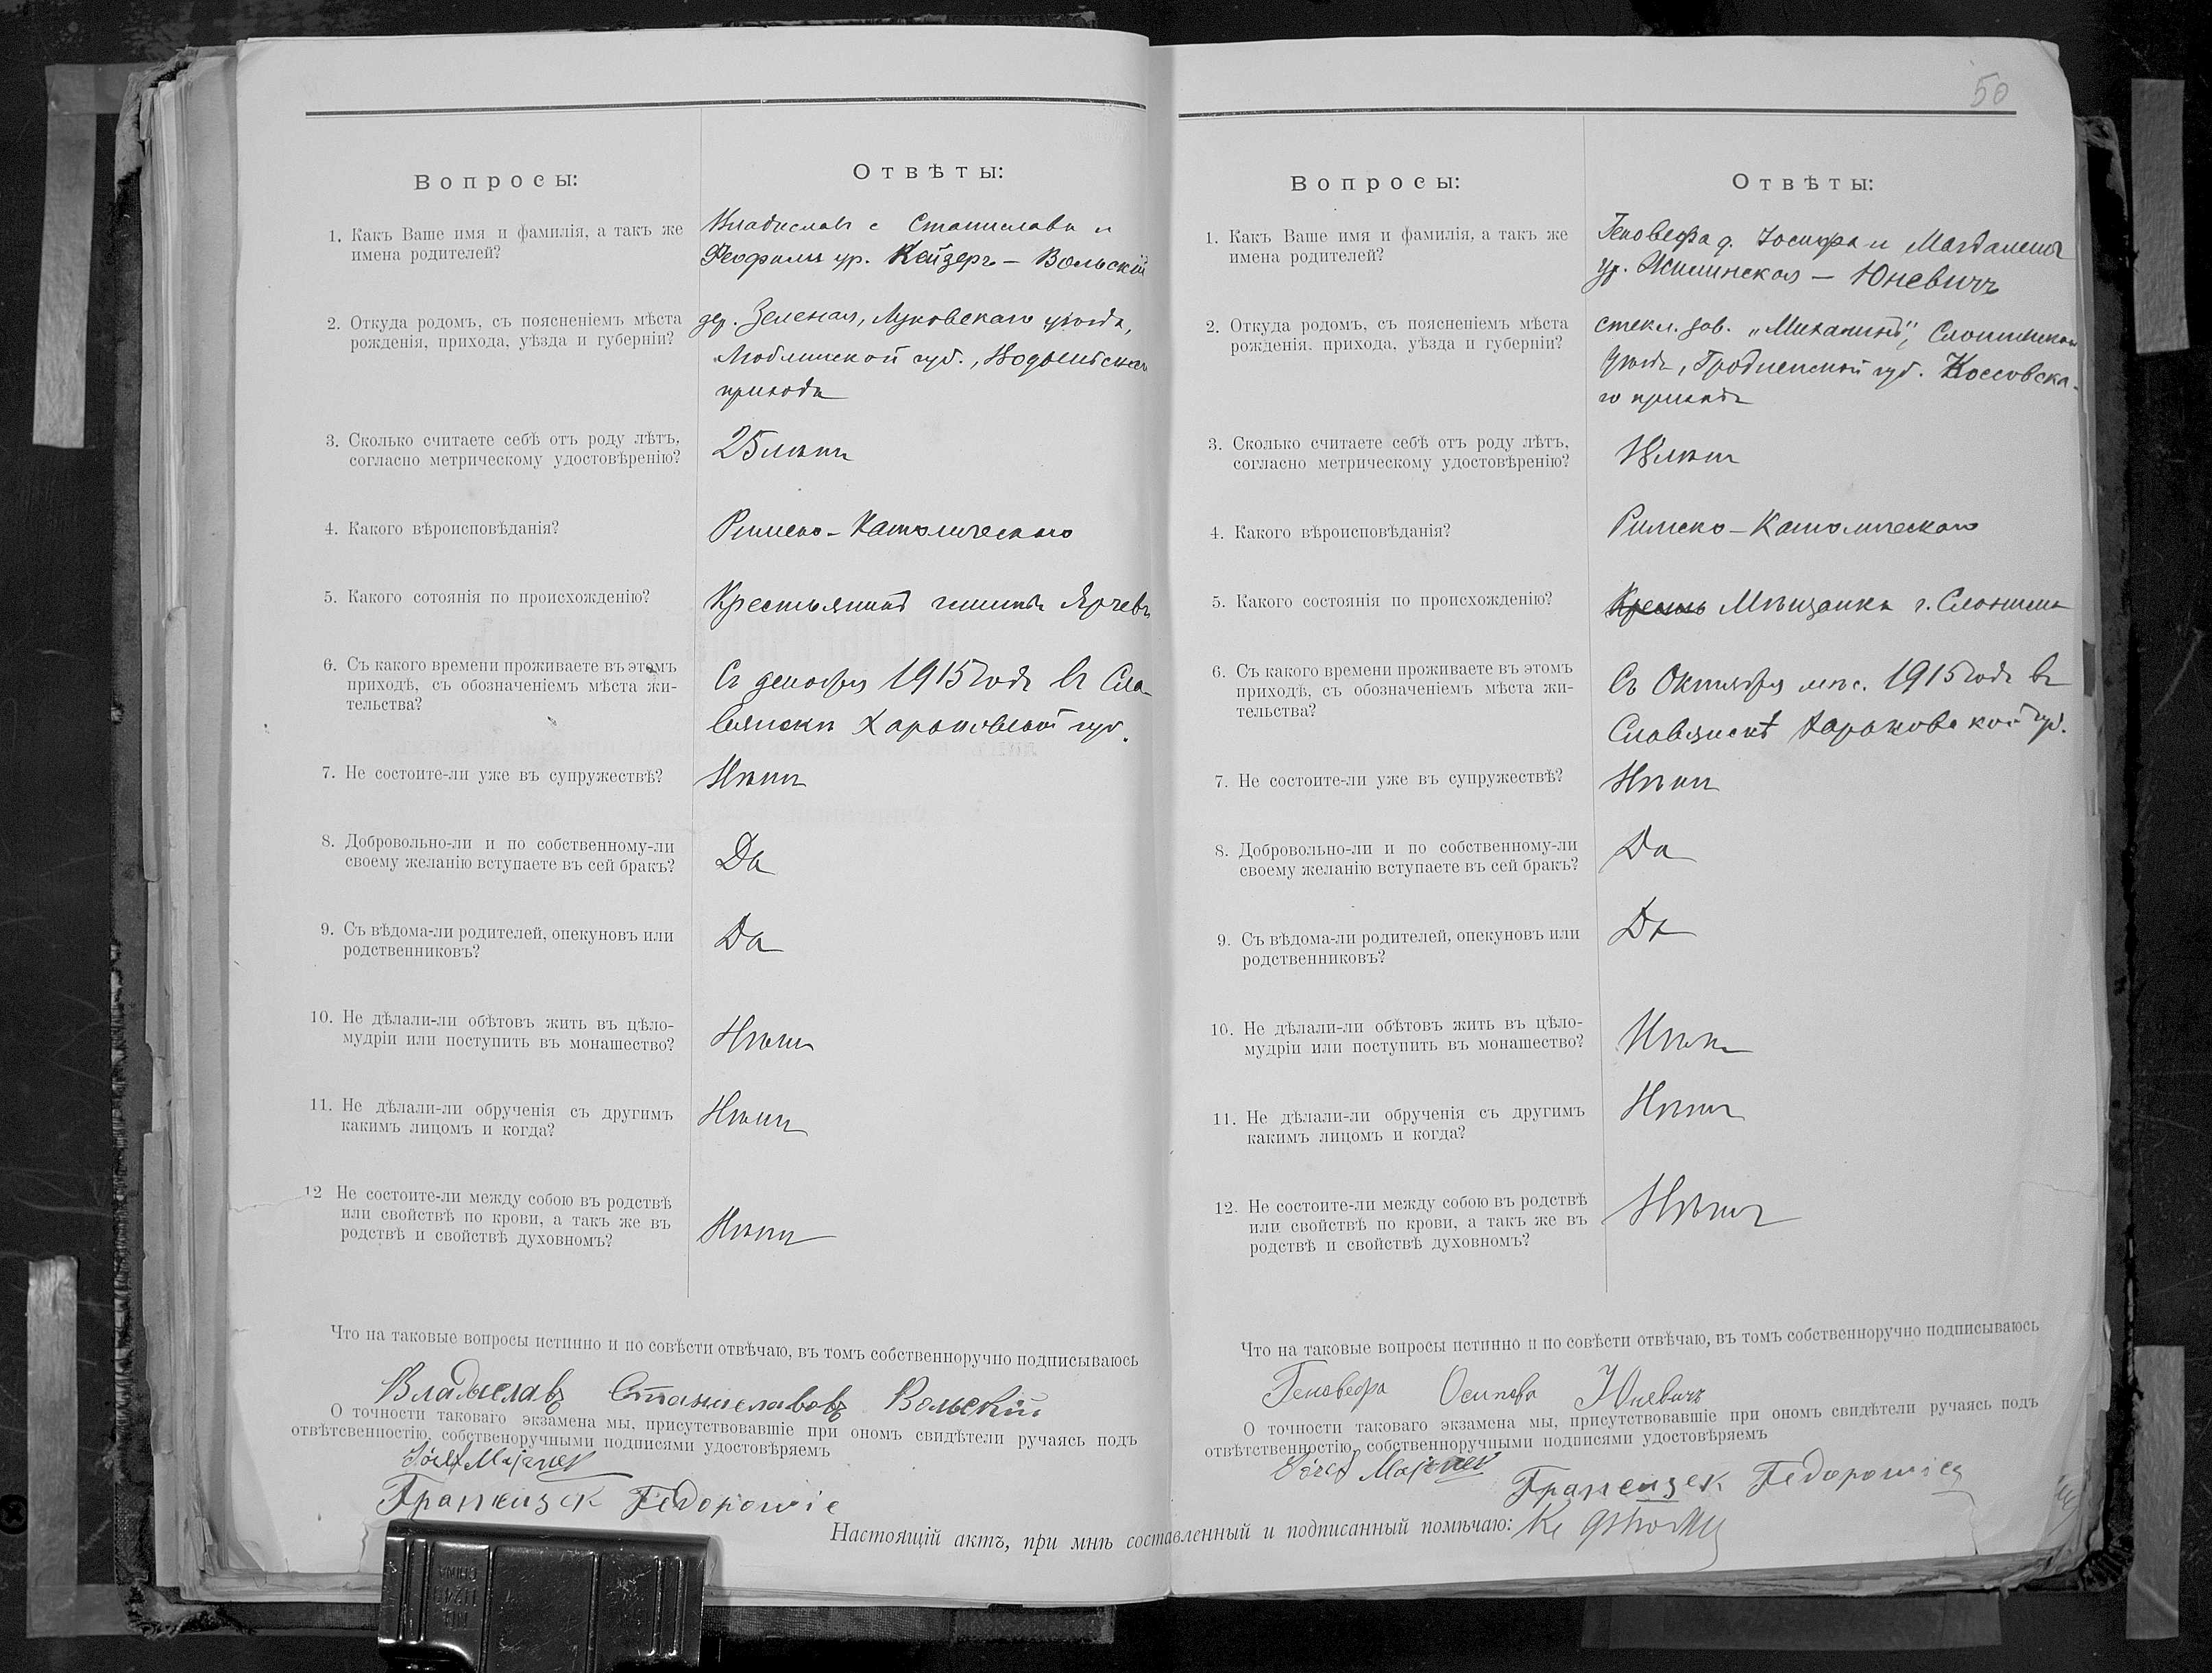 50
Вопросы:
Отвѣты:
1. Какъ Ваше имя и фамилія, а такъ же
имена родителей?
Владиславъ с Станислава и
Теофили ур. Кейзеръ – Вольскій
2. Откуда родомъ, съ поясненіемъ мѣста
рожденія, прихода, уѣзда и губерніи?
дер. Зеленая, Луковскаго уѣзда,
Люблинской губ.,
прихода
3. Сколько считаете себѣ отъ роду лѣтъ,
согласно метрическому удостовѣренію?
25 лѣтъ
4. Какого вѣроисповѣданія?
Римско-Католическаго
5. Какого сотоянія по происхожденію?
Крестьянинъ гмины
6. Съ какого времени проживаете въ этомъ
приходѣ, съ обозначеніемъ мѣста жи-
тельства?
Съ декабря 1915 года въ Сла-
вянскѣ Харьковской губ.
7. Не состоите-ли уже въ супружествѣ?
Нѣтъ
8. Добровольно-ли и по собственному-ли
своему желанію вступаете въ сей бракъ?
Да
9. Съ вѣдома-ли родителей, опекуновъ или
родственниковъ?
Да
10. Не дѣлали-ли обѣтовъ жить въ цѣло-
мудріи или поступить въ монашество?
Нѣтъ
11. Не дѣлали-ли обрученія съ другимъ
какимъ лицомъ и когда?
Нѣтъ
12 Не состоите-ли между собою въ родствѣ
или свойствѣ по крови, а такъ же въ
родствѣ и свойствѣ духовномъ?
Нѣтъ
Что на таковые вопросы истинно и по совѣсти отвѣчаю, въ томъ собственноручно подписываюсь
Владыславъ Станиславовъ Вольскій
О точности таковаго экзамена мы, присутствовавшіе при ономъ свидѣтели ручаясь подъ
отвѣтсвенностію, собственоручными подписями удостовѣряемъ
Józef
Вопросы:
Отвѣты:
1. Какъ Ваше имя и фамилія, а такъ же
имена родителей?
Геновефа д. Іосифа и Магдалены
ур. Жилинская – Юневичъ
2. Откуда родомъ, съ поясненіемъ мѣста
рожденія. прихода, уѣзда и губерніи?
стекл. зав. Слонимскаго
уѣзда, Гродненской губ. Коссовска-
го прихода
3. Сколько считаете себѣ отъ роду лѣтъ,
согласно метрическому удостовѣренію?
18 лѣтъ
4. Какого вѣроисповѣданія?
Римско-Католическаго
5. Какого состоянія по происхожденію?
Мѣщанка г. Слонима
6. Съ какого времени проживаете въ этомъ
приходѣ, съ обозначеніемъ мѣста жи-
тельства?
Съ Октября мѣс. 1915 года въ
Славянскѣ Харьковской гу.
7. Не состоите-ли уже въ супружествѣ?
Нѣтъ
8. Добровольно-ли и по собственному-ли
своему желанію вступаете въ сей бракъ?
Да
9. Съ вѣдома-ли родителей, опекуновъ или
родственниковъ?
Да
10. Не дѣлали-ли обѣтовъ жить въ цѣло-
мудріи или поступить въ монашество?
Нѣтъ
11. Не дѣлали-ли обрученія съ другимъ
какимъ лицомъ и когда?
Нѣтъ
12. Не состоите-ли между собою въ родствѣ
или свойствѣ по крови, а такъ же въ
родствѣ и свойствѣ духовномъ?
Нѣтъ
Что на таковые вопросы истинно и по совѣсти отвѣчаю, въ томъ собственноручно подписываюсь
Геновефа Осипова Юневичъ
О точности таковаго экзамена мы, присутствовавшіе при ономъ свидѣтели ручаясь подъ
отвѣтственностію, собственноручными подписями удостовѣряемъ
Józef
Настоящій актъ, при мнѣ составленный и подписанный помѣчаю: